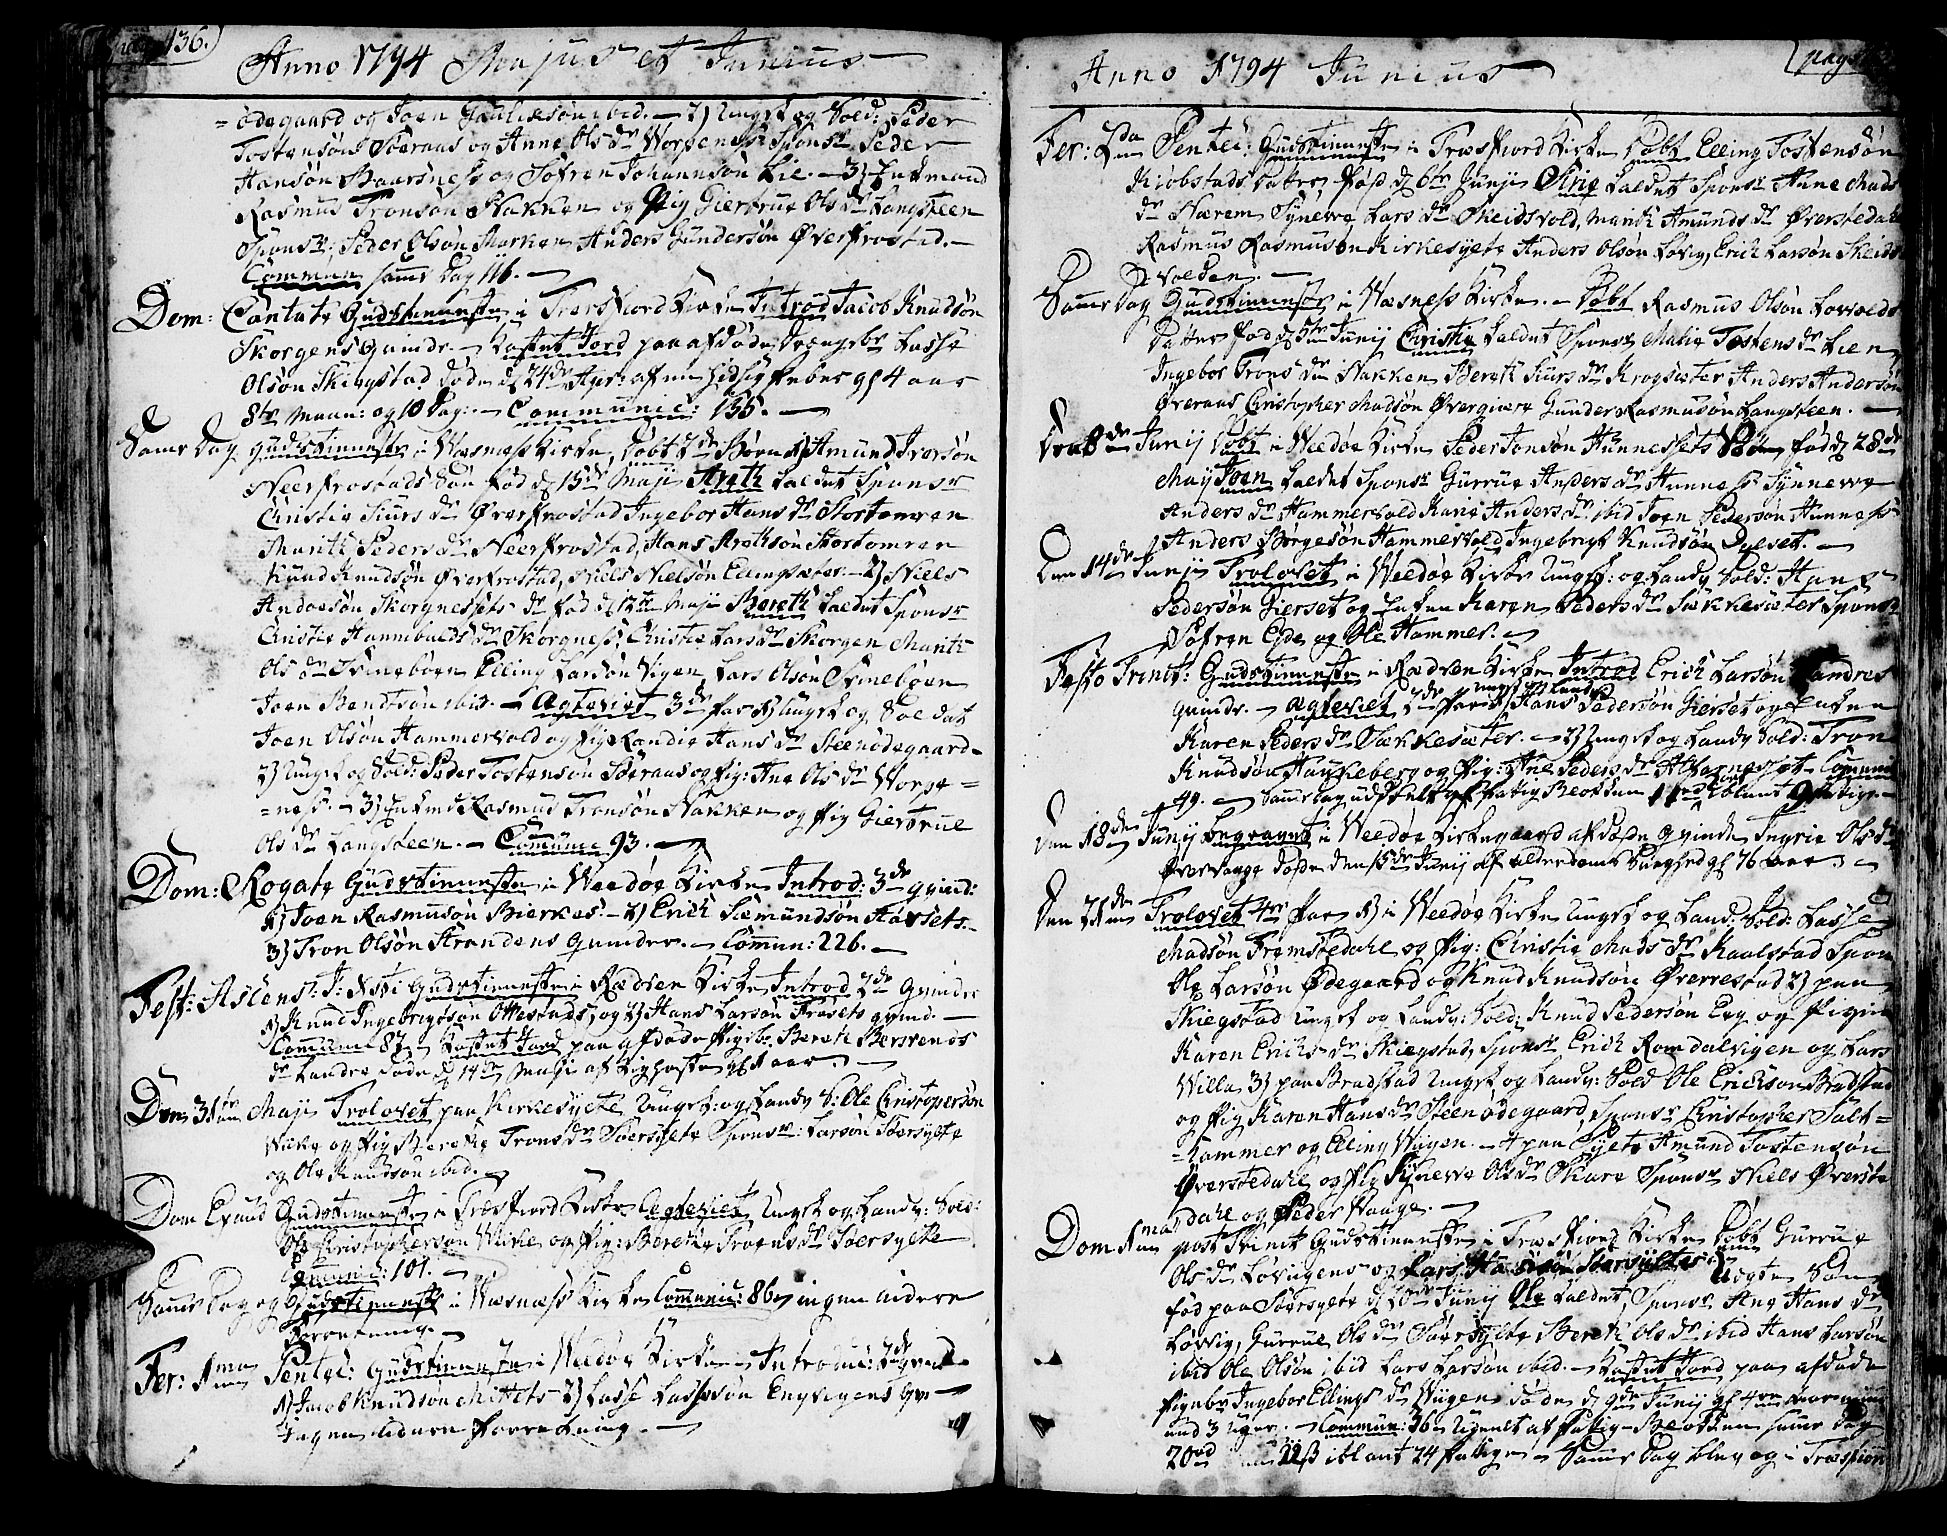 pag 136.
Anno 1794 Majus et Junius
= ödegaard og Joen Gulliksøn ibid. — 2) Ungk: og Sold: Peder
Tostensøn Søeraas og Anne Ols dr Worpenes Spons: Peder
Hansøn Baarsness og Søfren Johannsøn Lie. — 3) Enkemand
Rasmus Tronsøn Nakken og Pig Giertrue Ols dr Langsteen
Spons: Peder Olsøn Morken Anders Gundersøn Øverfrostad. —
Commun: samme Dag 116. —
Dom: Cantate Gudstienneste i Træsfiord Kirke Introd Jacob Knudsøn
Skorgens Qvinde. — Kastet Jord paa afdøde Drengebr Lasse
Olsøn Skiegstad døde d 24de Apr: af en hidsig Feber gl 4 aar
8te Maan: og 10 Dag: — Communic: 135. —
Samme Dag Gudstienneste i Wæsness Kirke, døbt 2de Børn 1) Amund Iversøn
Neerfrostads Søn fød d 15de Maji Areth kaldet Spons:
Christie Siurs dr Øverfrostad Ingebor Hans dr Stortomren
Marith Peders dr Neerfrostad, Hans Arethsøn Stortomren
Knud Knudsøn Øverfrostad, Niels Nielsøn Ellingsæter. — 2) Niels
Andersøn Skorgnessets dr fød d 12te Maji Bereth kaldet Spons:
Christie Hannibals dr Skorgness, Christie Lars dr Skorgen Marith
Ols dr Svinebøen Elling Larsøn Vigen, Lars Olsøn Svinebøen
Joen Bendtsøn ibid. — Ægteviet 3de Par 1) Ungk og Soldat
Joen Olsøn Hammervold og Pig Randie Hans dr Steenødegaard —
2) Ungk og Sold: Peder Tostensøn Søeraas og Pig: Ane Ols dr Worpe =
= ness. — 3) Enkmd Rasmus Tronsøn Nakken og Pig Giertrue
Ols dr Langsteen. — Communic 93. —
Dom: Rogate Gudstienneste i Weedøe Kirke Introd: 3de Qvind:
1) Joen Rasmusøn Bierkes — 2) Erich Sæmundsøn Horsets —
3) Tron Olsøn Strandens Qvinder. — Commun: 226. —
Fest: Ascens: J: Xsti Gudstienneste i Rødven Kirke Introd 2de Qvinder
1) Knud Ingebrigtsøn Ottestads, og 2) Hans Larsøn Frøsets Qvind. —
Commun 87. Kastet Jord paa afdøde Pigebr Bereth Bersvends
dr Landre døde d 14de Maji af Kighoste gl 1 aar —
Den 31te Maji Trolovet paa Kirkesylte Ungk: og Landv S: Ole Christopersøn
Wiike og Pig Berethe Trons dr Søersylte Spons: Larsøn Søersylte
og Ole Knudsøn ibid. —
Dom Exaud Gudstienneste i Træsfiord Kirke Ægteviet Ungk og Landv: Sold:
Ole Christophersøn Wiike og Pig: Berethe Troens dr Søersylte
Communic: 101. —
Samme Dag og Gudstienneste i Wæsness Kirke Communic: 86, ingen videre
Forretning. —
Fer: 1ma Pentec: Gudstienneste i Weedøe Kirke — Introduc: 2de Qvind
1) Jacob Knudsøn Mittets 2) Lasse Lassesøn Engvigens Qvi —
Ingen videre Forretning. —

Anno 1794 Junius
pag
Fer: 2da Pentec: Gudstienneste i Træsfiord Kirke døbt Elling Tostensøn
Kiøbstads Datter fød d 6te Junij Siri kaldet Spons: Anne Mads
dr Nærem Synneve Lars dr Skeidsvold, Marith Amunds dr Øverstedahl
Rasmus Rasmusøn Kirkesylte Anders Olsøn Løvig, Erich Larsøn Skeids
volden. —
Samme Dag Gudstienneste i Wæsness Kirke. — Døbt Rasmus Olsøn Lovolds
Datter fød d 5te Junij Christie kaldet Spons: Malie Tostens dr Lien
Ingebor Trons dr Nakken Bereth Siurs dr Krogsæter Anders Andersøn
Øveraas Christopher Madsøn Øvergiære Gunder Rasmusøn Langsteen. —
Den 8de Junij Døbt i Weedøe Kirke Peder Jonsøn Hunnessets Søn fød d 28de
Maij Joen kaldet Spons: Gurrue Anders dr Hunness Synneve
Anders dr Hammervold Karie Anders dr ibid Joen Pedersøn Hunness
Anders Børgesøn Hammervold Ingebrigt Knudsøn Dylset. —
Den 14de Junij Trolovet i Weedøe Kirke Ungk: og Landv Sold: Hans
Pedersøn Gierset og Enken Karen Peders dr Sækkesæter Spons:
Søfren Eide og Ole Hammer. —
Festo Trinit: Gudstienneste i Rødven Kirke Introd Erich Larsøn Landres
Qvinde. — Ægteviet 2de Par 1) Hans Pedersøn Gierset og Enken
Karen Peders dr Sækkesæter. — 2) Ungk og Landv Sold: Tron
Knudsøn Haukeberg og Pig: Ane Peders dr Alfarneset — Communic
49. — Samme Dag uddeelt af Fattig Bøssen 1 rd iblant 9 fattige. —
Den 18de Junij begravet i Weedøe Kirkegaard afdøde Qvinde Ingrie Ols dr
Øverwaage døde den 15de Junij af Alderdoms Svaghed gl 76 aar. —
Den 21de Trolovet 4re Par 1) i Weedøe Kirke Ungk og Land: Sold: Lasse
Madsøn Fremstedahl og Pig: Christie Mads dr Kaalstad Spons
Ole Larsøn Ødegaard og Knud Knudsøn Øverrestad 2) paa
Skiegstad Ungk og Landv: Sold: Knud Pedersøn Eeg og Pigen
Karen Erichs dr Skiegstad, Spons: Erich Romdalvigen og Lars
Willa 3) paa Bradstad Ungk og Landv: Sold Ole Erichsøn Bradstad
og Pig Karen Hans dr Steenødegaard, Spons: Christopher Salt=
=kammer og Elling Wiigen. — 4 paa Sylte Amund Tostensøn
Øverstedahl og Pig Synneve Ols dr Skare Spons: Niels Øverste
dahl og Peder Haage. —
Dom 1ma post Trinit Gudstienneste i Træsfiord Kirke døbt Gurrue
Ols dr Løvigens og Lars Hansøn Søersyltes Uægte Søn
fød paa Søersylte d 10de Junij Ole kaldet, Spons: Ane Hans dr
Løvig, Gurrue Ols dr Søersylte Bereth Ols dr ibid Hans Larsøn
ibid Ole Olsøn ibid Lars Larsøn ibid. — Kastet Jord paa afdøde
Pigebr Ingebor Ellings dr Wiigen døde d 9de Junij gl 4re aar
und 3 Uger. — Commun: 36 Uddeelt af Fattig Bøssen samme Dag
20rd iblant 24 Fattige — Samme Dag blev og i Træsfiord